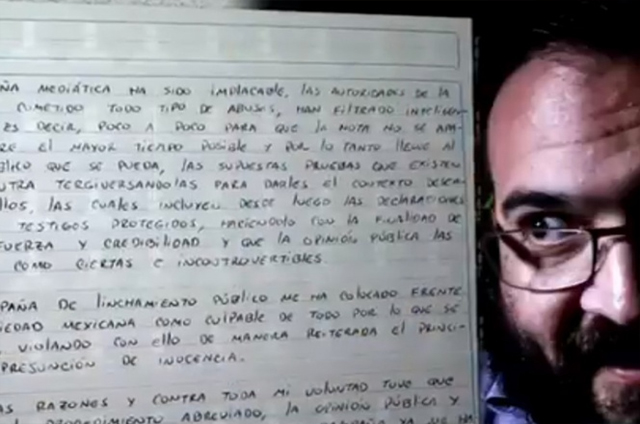 ÑA MEDIÁTICA HA SIDO IMPLACABLE, LAS AUTORIDADES DE LA
COMETIDO TODO TIPO DE ABUSOS, HAN FILTRADO
ES DECIR, POCO A POCO PARA QUE LA NOTA NO SE
RE EL MAYOR TIEMPO POSIBLE Y POR LO TANTO LLEGUE AL
BLICO QUE SE PUEDA, LAS SUPUESTAS PRUEBAS QUE EXISTEN
NTRA TERGIVERSANDOLAS PARA DARLES EL CONTEXTO DESEA
LLOS, LAS CUALES INCLUYEN DESDE LUEGO LAS DECLARACIONES
TESTIGOS PROTEGIDOS, HACIENDOLO CON LA FINALIDAD DE
FUERZA Y CREDIBILIDAD Y QUE LA OPINIÓN PÚBLICA LAS
COMO CIERTAS E INCONTROVERTIBLES.
PAÑA DE LINCHAMIENTO PÚBLICO ME HA COLOCADO FRENTE
IEDAD MEXICANA COMO CULPABLE DE TODO POR LO QUE SE
VIOLANDO CON ELLO DE MANERA REITERADA EL PRINCI-
PRESUNCIÓN DE INOCENCIA.
AS RAZONES Y CONTRA TODA MI VOLUNTAD TUVE QUE
PROCEDIMIENTO ABREVIADO, LA OPINIÓN PÚBLICA Y
YA SE HA